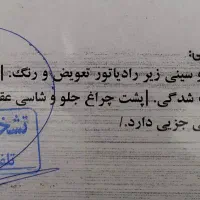 ی:
و سینی زیر رادیاتور تعویض و رنگ. |
شدگی. |پشت چراغ جلو و شاسی عق
ی جزیی دارد./
تشخ
تلف